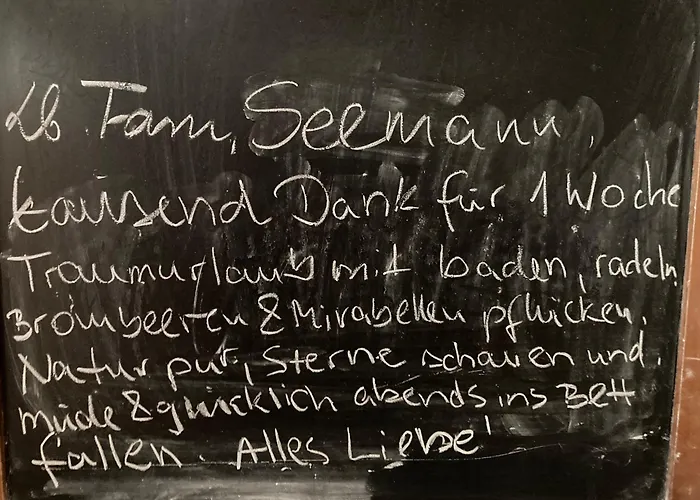 Lb. Fam. Seemann,
tausend Dank für 1 Woche
Traumurlaub mit baden, radeln,
Brombeeren & Mirabellen pflücken,
Natur pur, Sterne schauen und
müde & glücklich abends ins Bett
fallen. Alles Liebe!